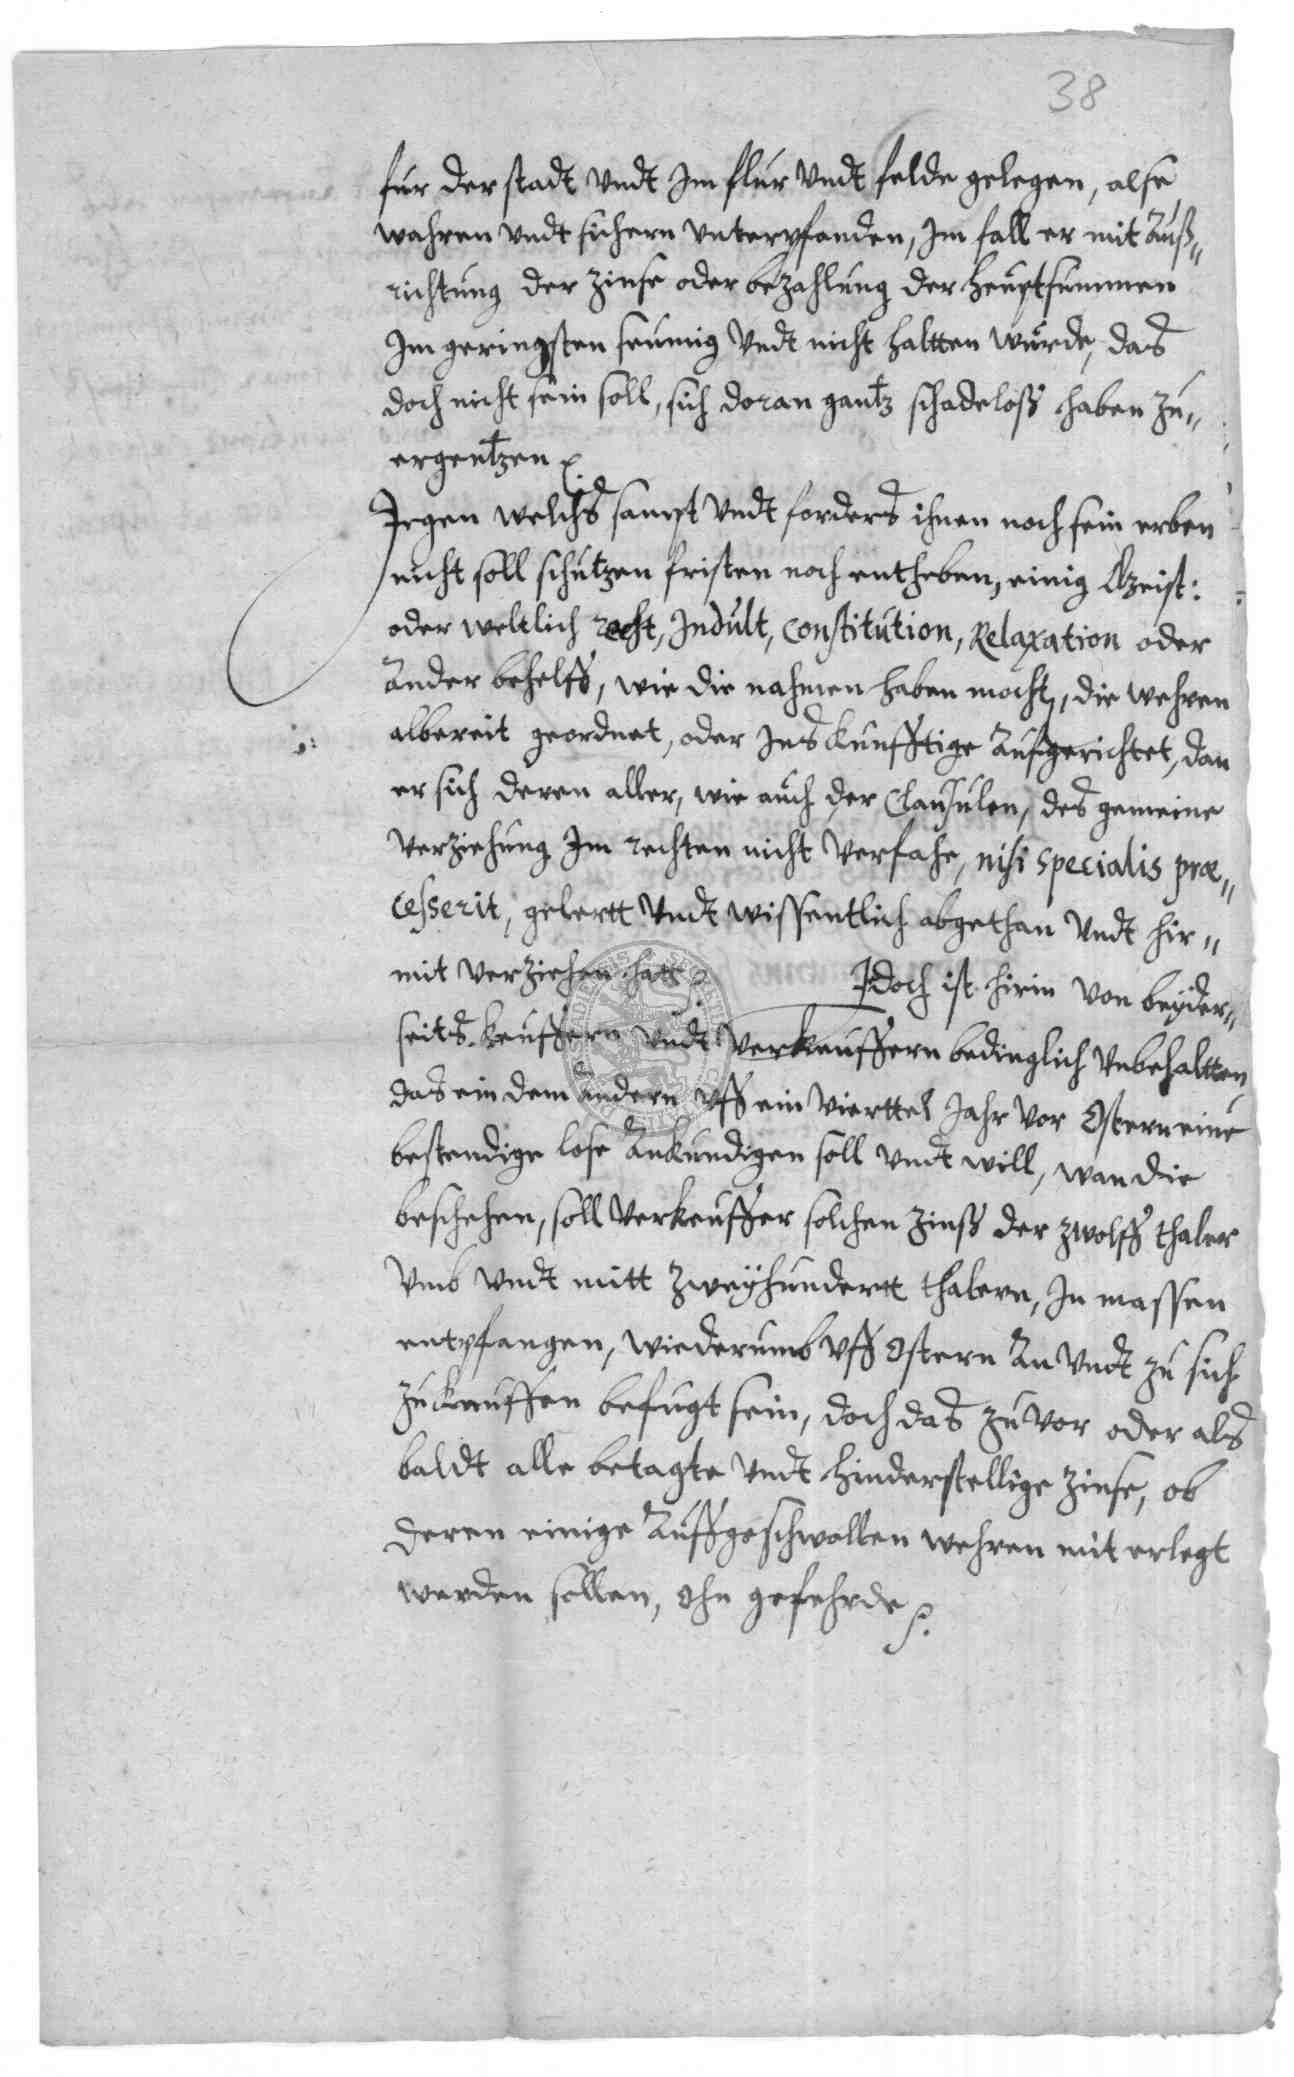 38
fur der stadt vndt Im flur vndt felde gelegen, alse
wahren vndt sichern vnterpfanden, Im fall er mit Auß„
richtung der Zinse oder bezahlung der heuptsummen
Im geringsten seumig vndt nicht haltten wurde, das
doch nicht sein soll, sich doran gantz schadeloß haben zu„
ergentzen
Jegen welchs sampt vndt forders ihnen noch sein erben
nicht soll schutzen fristen noch entheben, einig Geist:
oder weltlich recht, Indult, Constitution, Relaxation oder
Ander behelff, wie die nahmen haben mocht, die wehren
albereit geordnet, oder Ins kunfftige Aufgerichtet, dan
er sich deren aller, wie auch der Clausulen, des gemeine
verziehung Im rechten nicht verfahe, nisi specialis præ„
cesserit, gelertt vndt wissentlich abgethan vndt hir„
mit verziehen hatt Idoch ist hirin von beyder„
seits keuffern vndt verkeuffern bedinglich vnbehaltten,
das ein dem Andern vff ein vierttel Jahr vor Ostern eine
bestendige lose Ankundigen soll vndt will, wan die
beschehen, soll verkeuffer solchen Zinß der zwolff thaler
vmb vndt mitt zweyhundertt thalern, In massen
entpfangen, wiederumb vff Ostern An vndt zu sich
zukeuffen befugt sein, doch das zuvor oder als
baldt alle betagte vndt hinderstellige Zinse, ob
deren einige Auffgeschwollen wehren mit erlegt
werden sollen, Ohn gefehrde